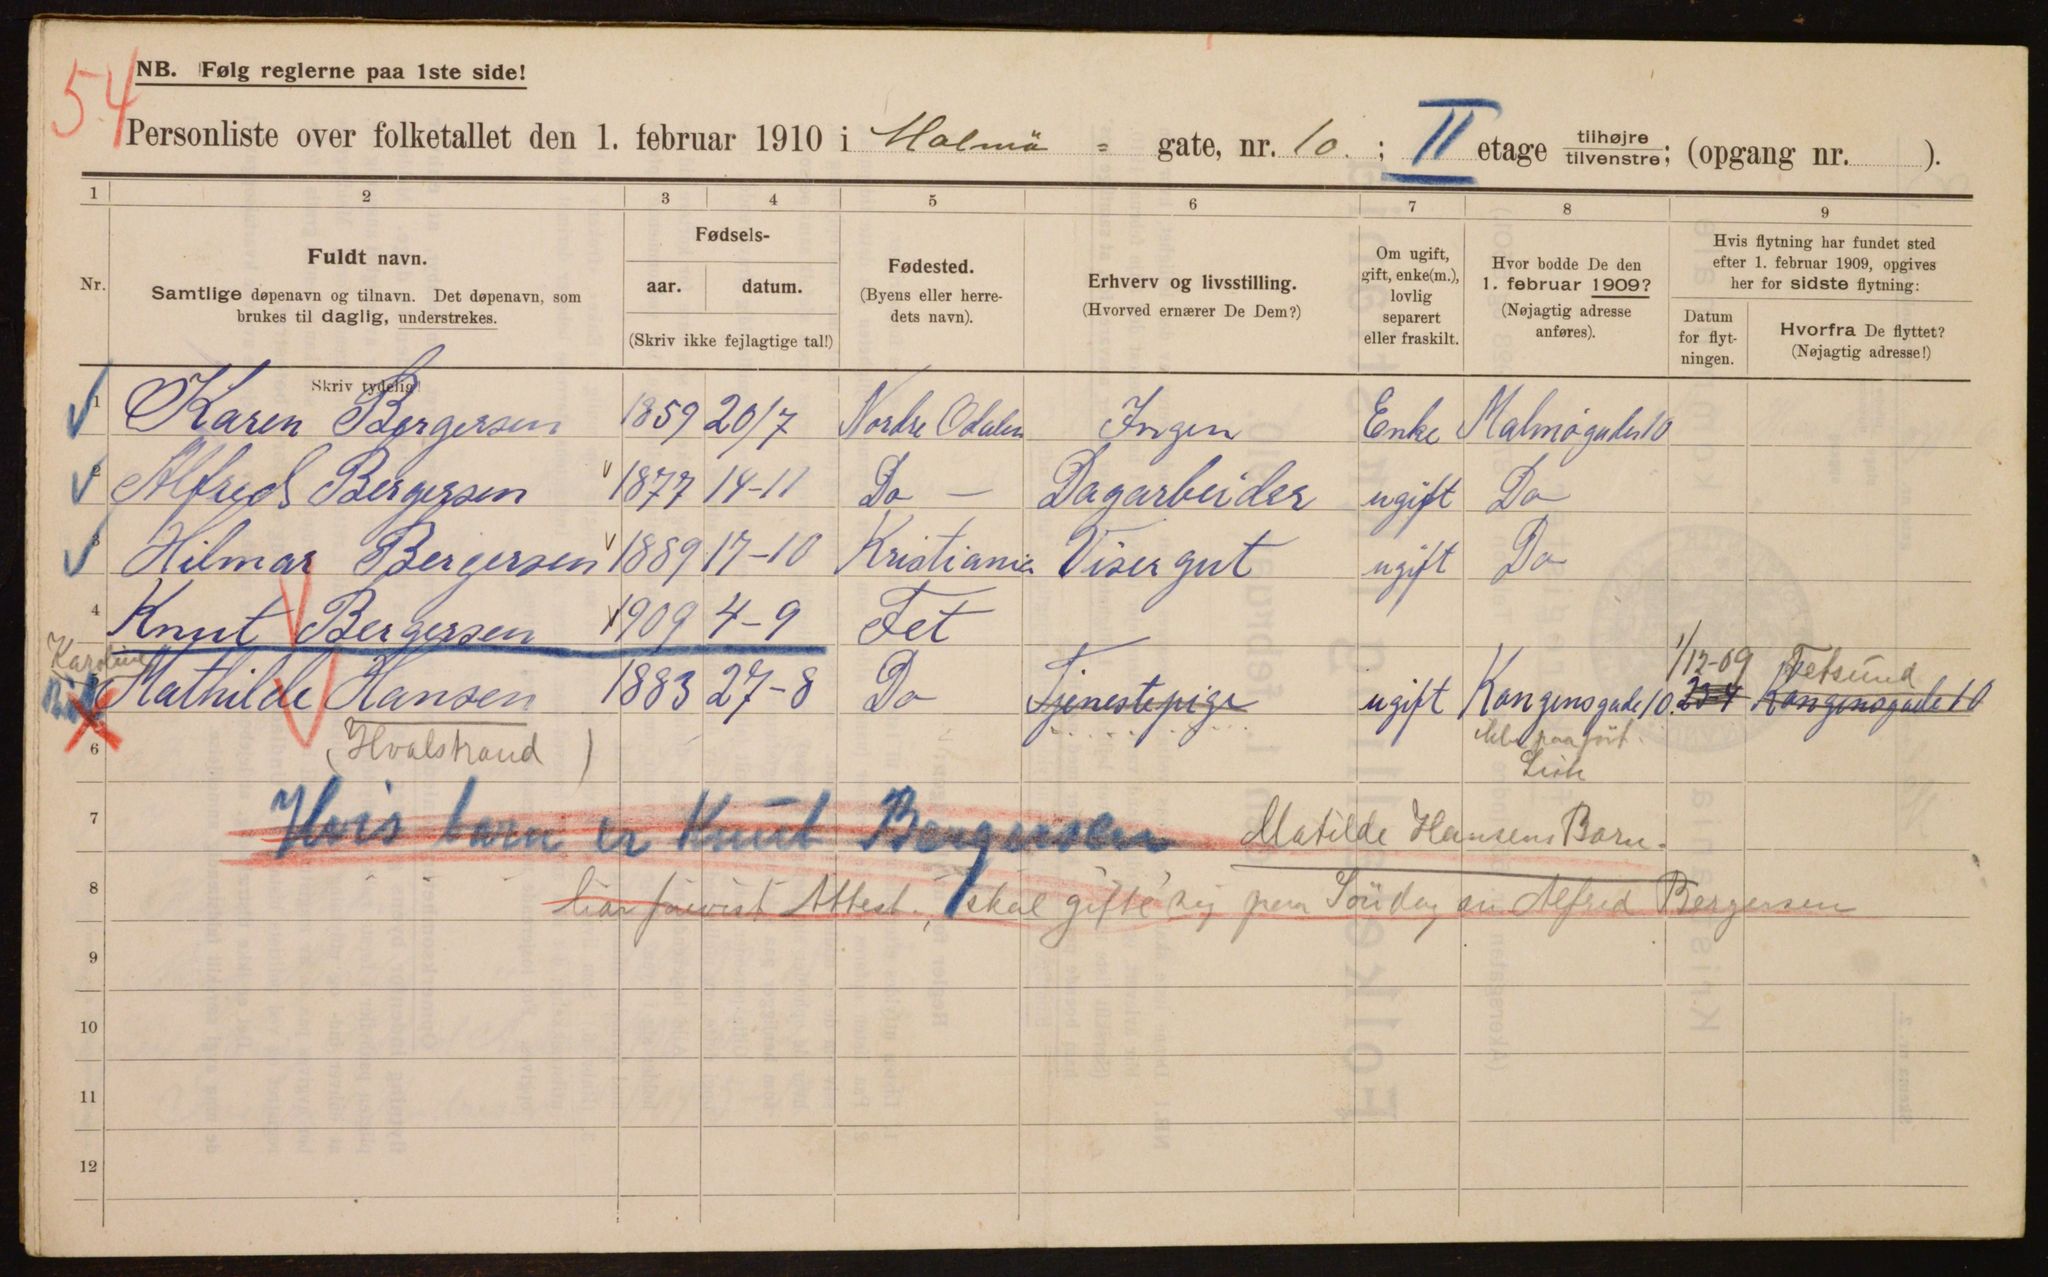 54
NB. Følg reglerne paa 1ste side!
Personliste over folketallet den 1. februar 1910 i Malmö - gate, nr. 10. ; II etage tilhøjre tilvenstre; (opgang nr. ).
1 2 3 4 5 6 7 8 9
Nr.
Fuldt navn.
Samtlige døpenavn og tilnavn. Det døpenavn, som
brukes til daglig, understrekes.
Skriv tydelig!
Fødsels-
aar. datum.
(Skriv ikke fejlagtige tal!)
Fødested.
(Byens eller herre-
dets navn).
Erhverv og livsstilling.
(Hvorved ernærer De Dem?)
Om ugift,
gift, enke(m.),
lovlig
separert
eller fraskilt.
Hvor bodde De den
1. februar 1909?
(Nøjagtig adresse
anføres).
Hvis flytning har fundet sted
efter 1. februar 1909, opgives
her for sidste flytning:
Datum
for flyt-
ningen.
Hvorfra De flyttet?
(Nøjagtig adresse!)
1 Karen Bergersen 1859 20/7 Nordre Odalen Ingen Enke Malmøgaden 10
2 Alfred Bergersen 1877 14-11 Do — Dagarbeider ugift Do
3 Hilmar Bergersen 1889 17-10 Kristiania Visergut ugift Do
4 Knut Bergersen 1909 4-9 Fet
Karoline 1/12-09 Fetsund
Mathilde Hansen 1883 27-8 Do Tjenestepige ugift Kongensgade 10. 23-4 Kongensgade 10
6 (Hvalstrand)
7 Hvis barn er Knut Bergersen Matilde Hansens Barn.
8 har forevist Attest., skal gifte sig paa Söndag m Alfred Bergersen
9
10
11
12